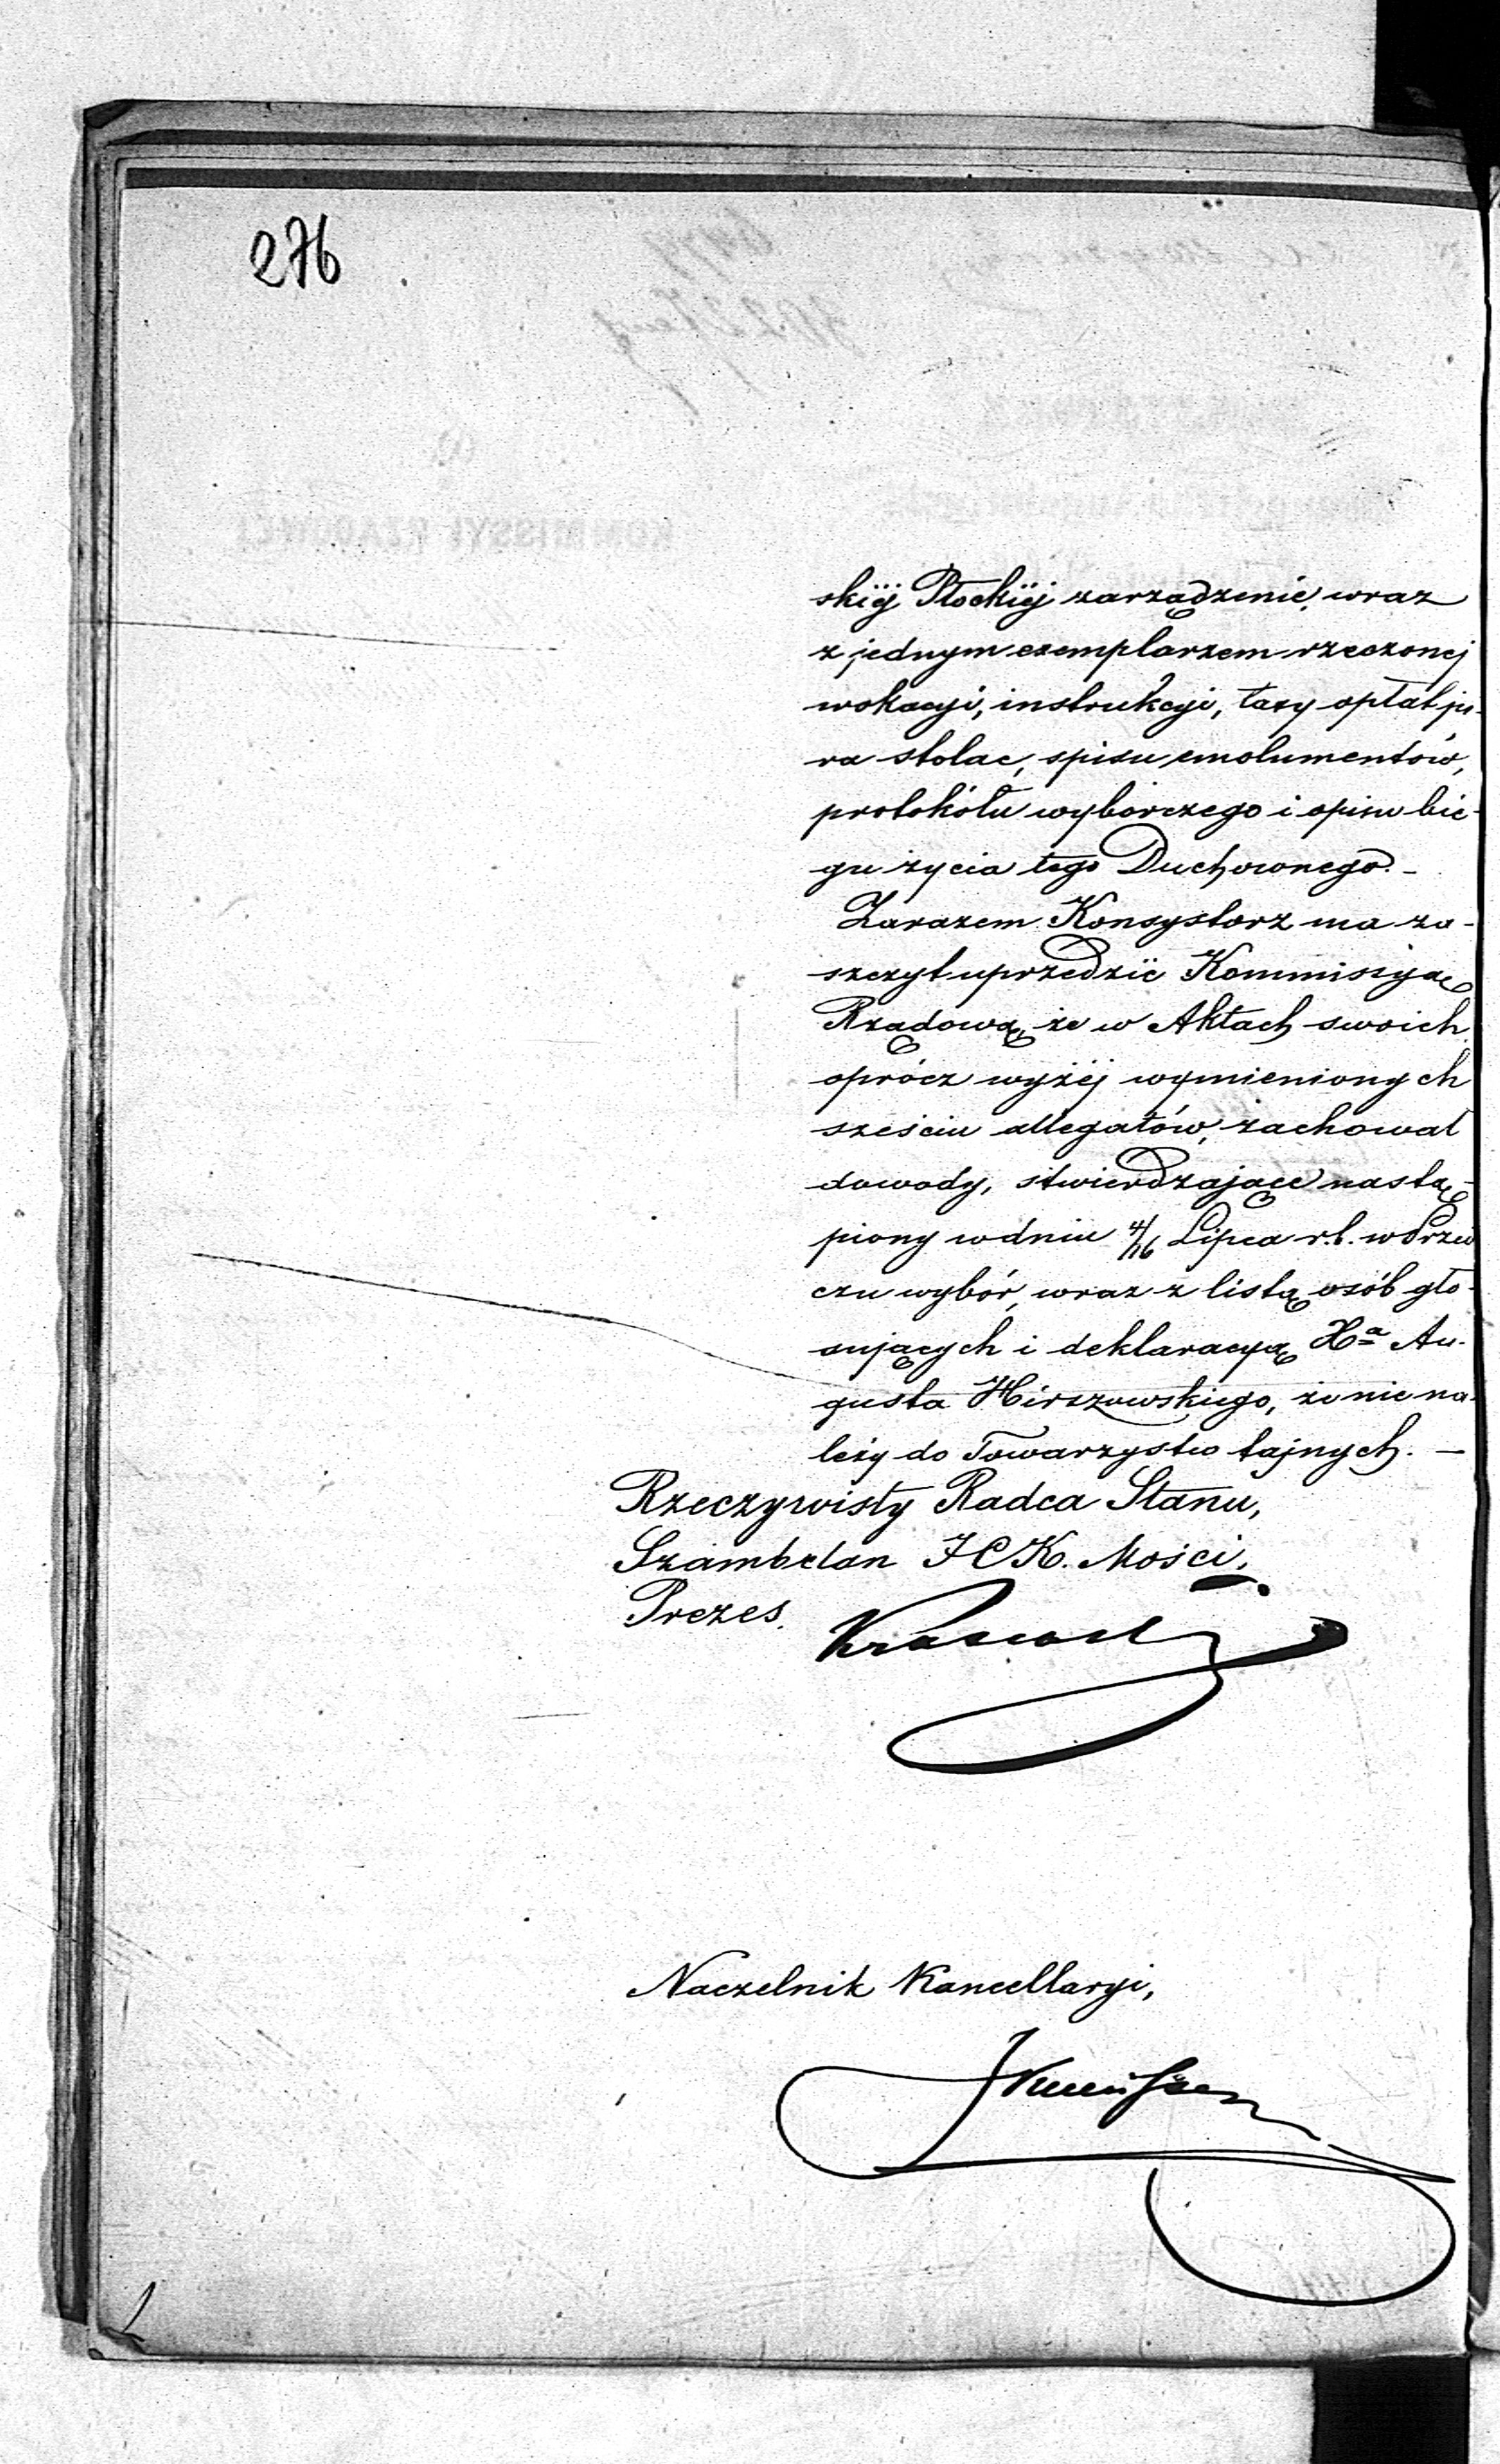 276
skiéj Płockiéj zarządzenie, wraz
z jednym exemplarzem rzeczonej
wokacyi, instrukcyi, taxy opłat ju-
ra stolae, spisu emolumentów,
protokółu wyborczego i opisu bie-
gu życia tego Duchownego. -
Zarazem Konsystorz ma za-
szczyt uprzedzić Kommissyą
Rządową, że w Aktach swoich
oprócz wyżéj wymienionych
sześciu allegatów, zachował
dowody, stwierdzające nastą-
piony w dniu 4/16 Lipca r.b. w
czu wybór, wraz z listą osób gło-
sujących i deklaracyą Xa Au-
gusta Hirszowskiego, że nie na-
leży do Towarzystw tajnych. —
Rzeczywisty Radca Stanu,
Szambelan J C K. Mości,
Prezes.
Naczelnik Kancellaryi,